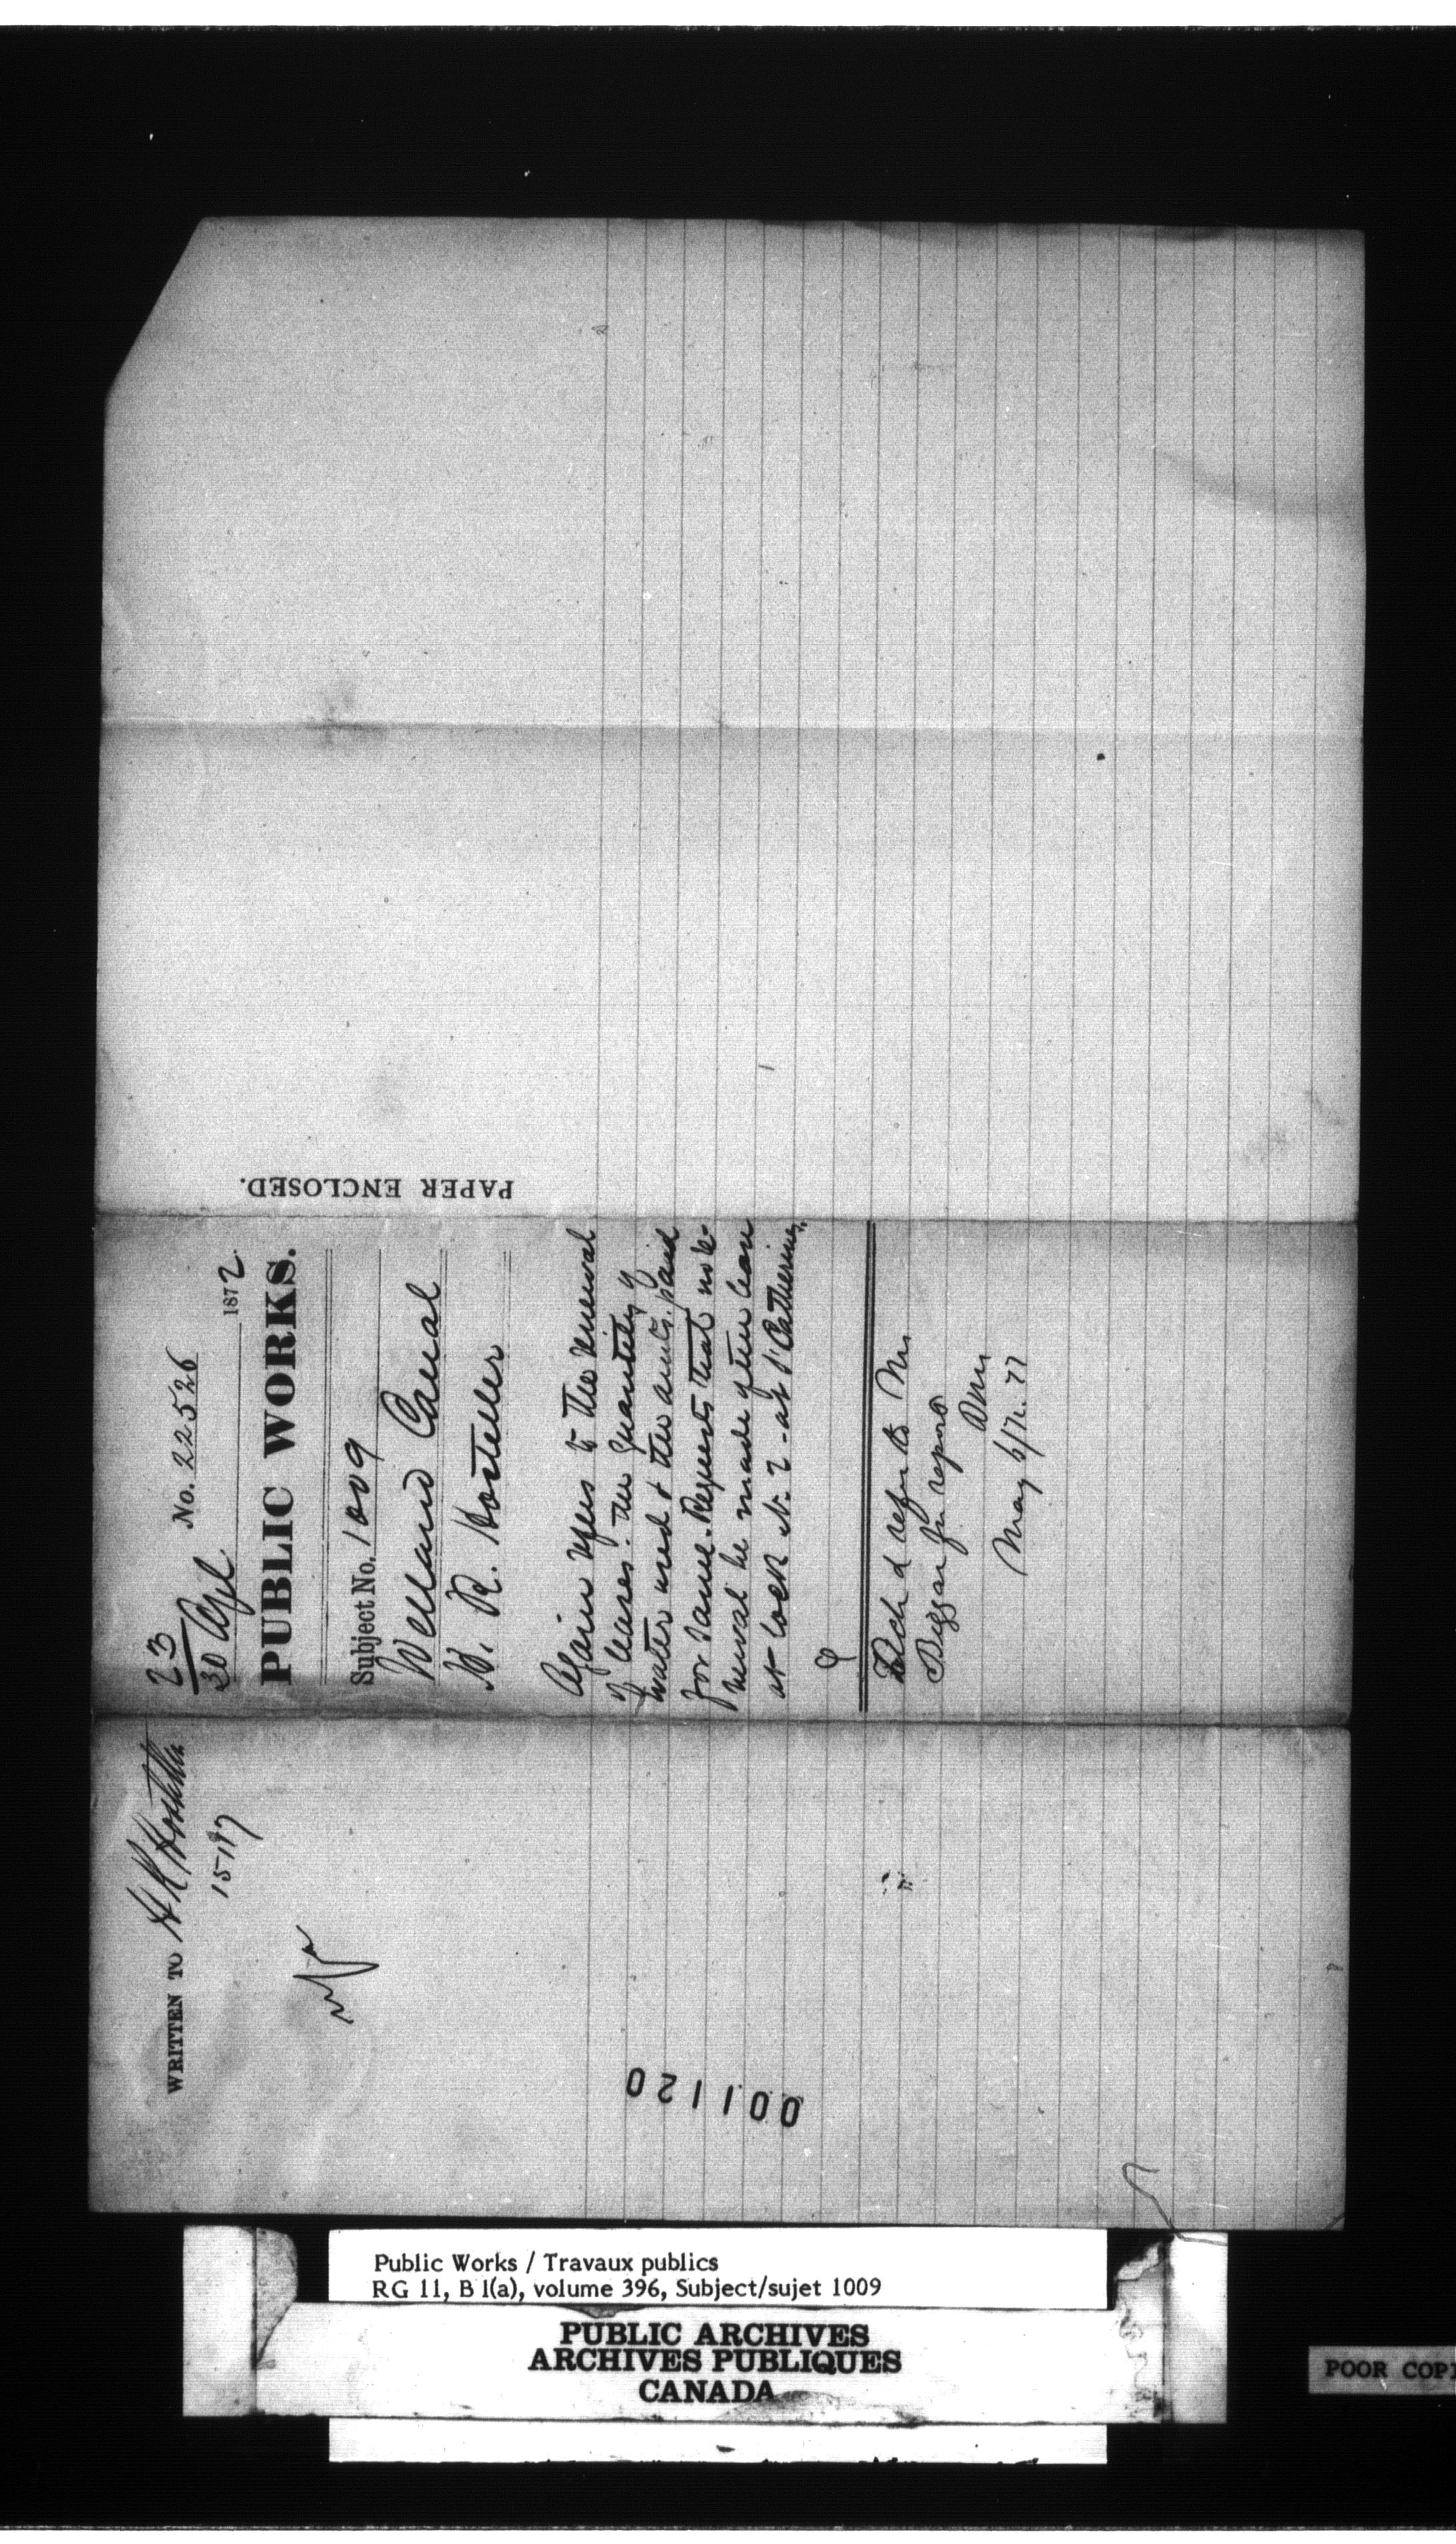 WRITTEN TO H R Hostetter
15117
23
30 Apl. No. 22526
1872
PUBLIC WORKS.
Subject No. 1009
Welland Canal
H. R. Hostetter
Again refers to the renewal
of leases. The quantity of
water used & the amts. paid
for same. Requests that no re-
newal be made of the lease
at Lock No. 2 - at St. Catherines.
refer to Mr
Biggar for report
May 6/72.
PAPER ENCLOSED.
001120
Public Works / Travaux publics
RG 11, B 1(a), volume 396, Subject/sujet 1009
PUBLIC ARCHIVES
ARCHIVES PUBLIQUES
CANADA
POOR COPI